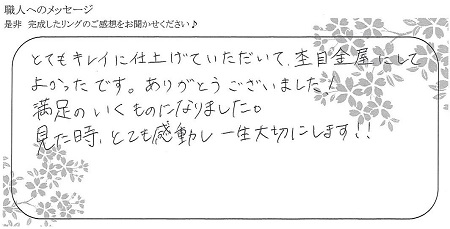 職人へのメッセージ
是非 完成したリングのご感想をお聞かせください♪
とてもキレイに仕上げていただいて、杢目金屋にして
よかったです。ありがとうございました!
満足のいくものになりました。
見た時、とても感動し一生大切にします!!